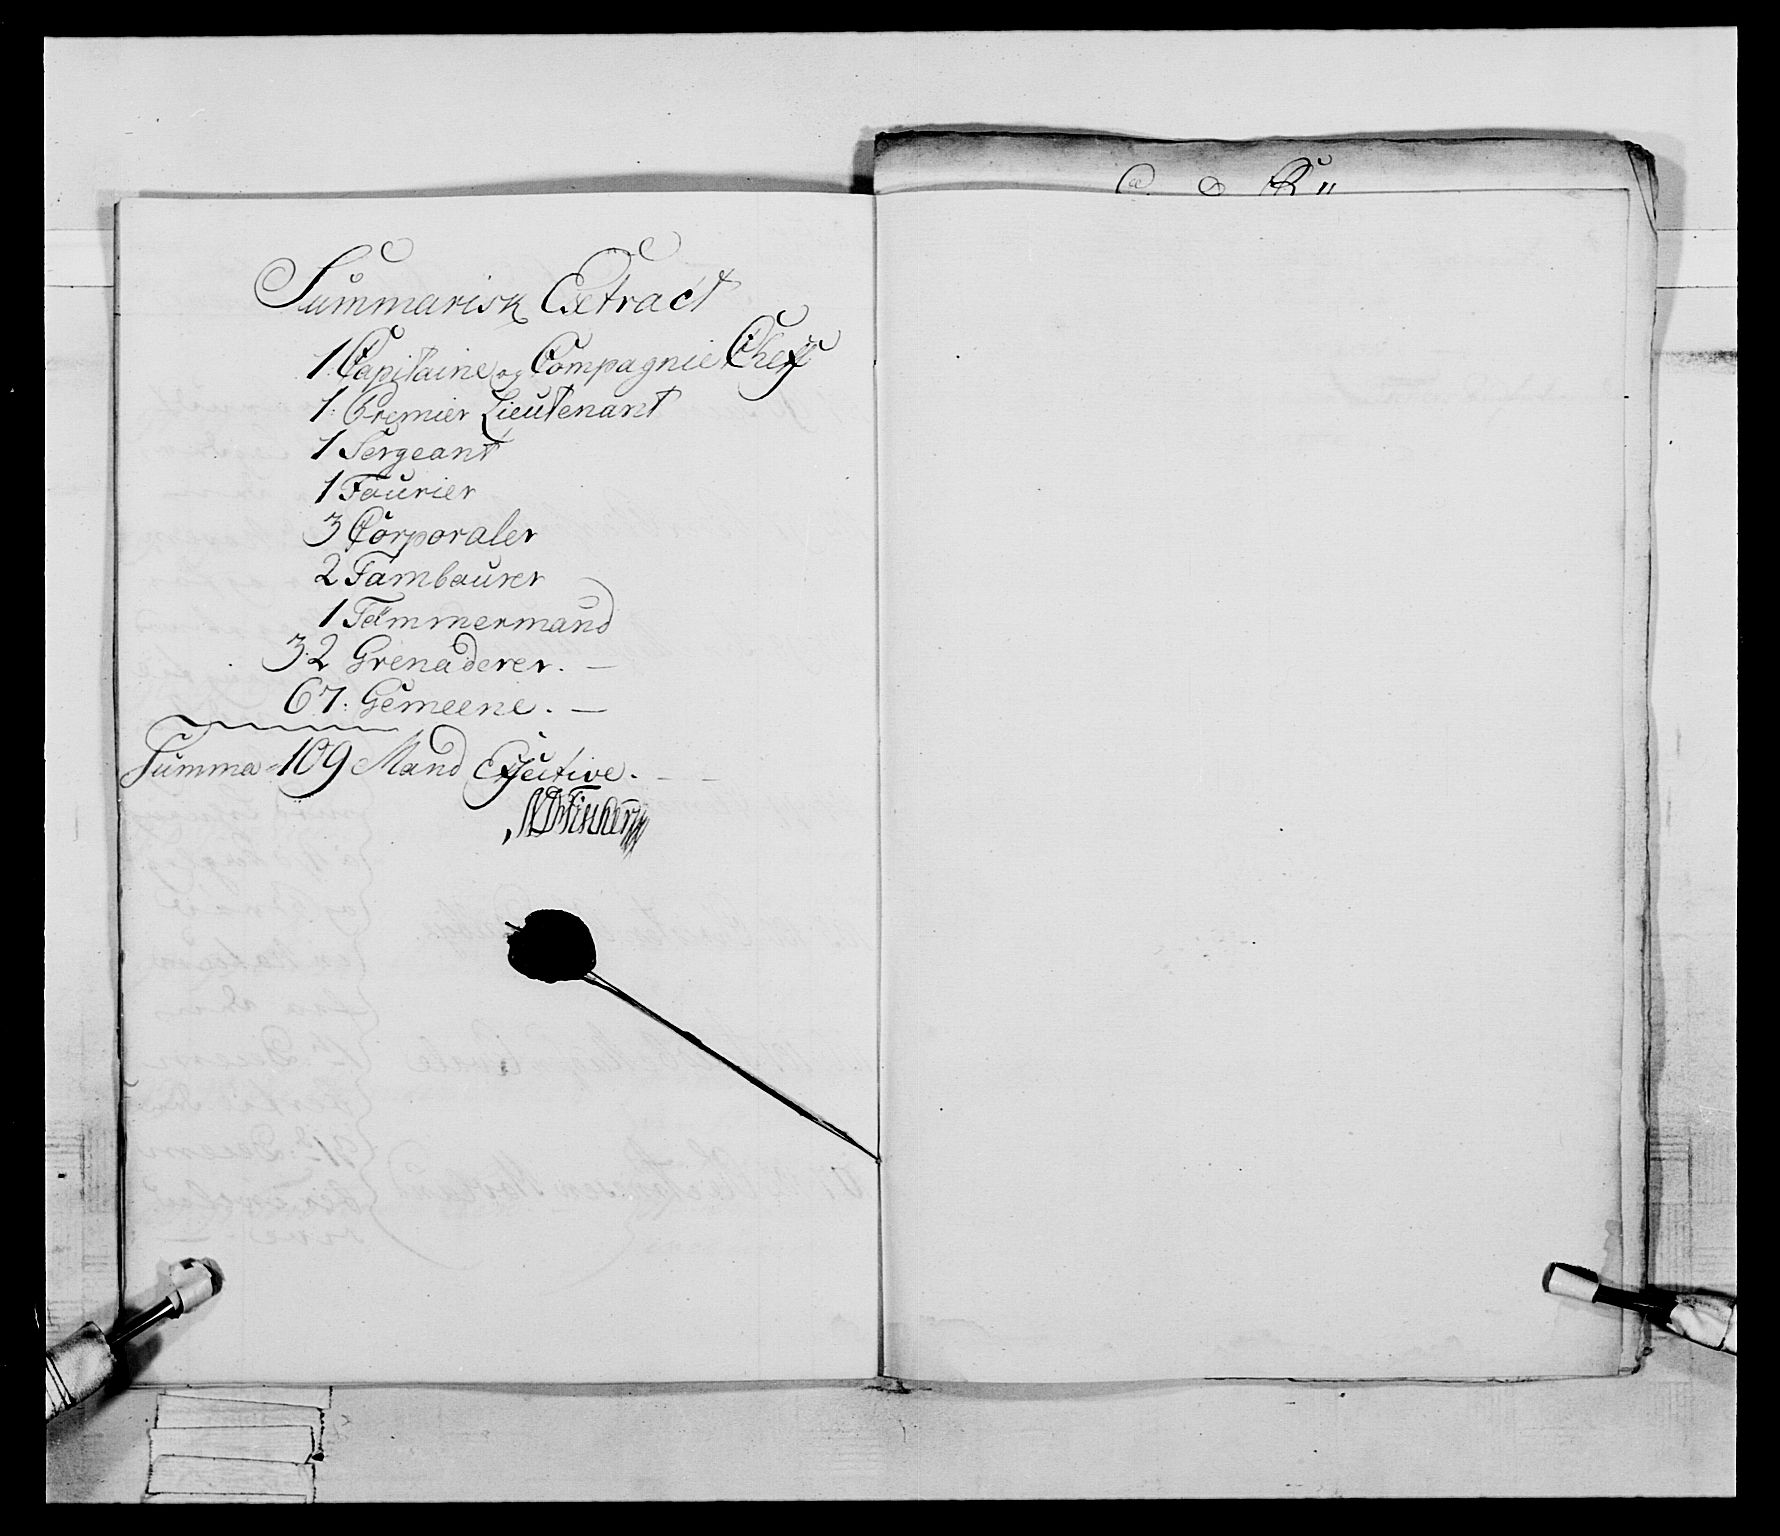 Summarisk Extract
1. Capitaine og Compagnie Cheff
1. Premier Lieutenant
1 Sergeant
1 Fourier
3 Corporaler
2 Tambourer
1 Tømmermand
32 Grenaderer. —
67. Gemeene. —
Summa = 109 Mand Effective. — —